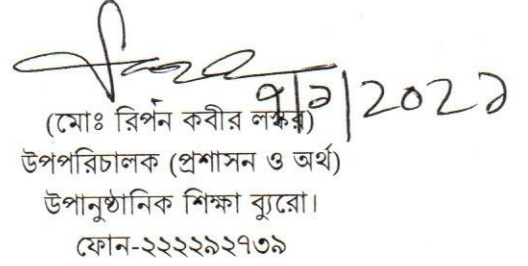 ৭/১/২০২১
(মোঃ রিপন কবীর লস্কর)
উপপরিচালক (প্রশাসন ও অর্থ)
উপানুষ্ঠানিক শিক্ষা ব্যুরো।
ফোন-২২২২৯২৭৩৯